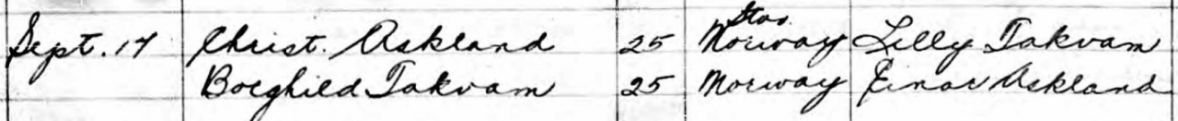 Stav.
Sept. 17 Christ. Askland 25 Norway Lilly Takvam
Borghild Takvam 25 Norway Einar Askland